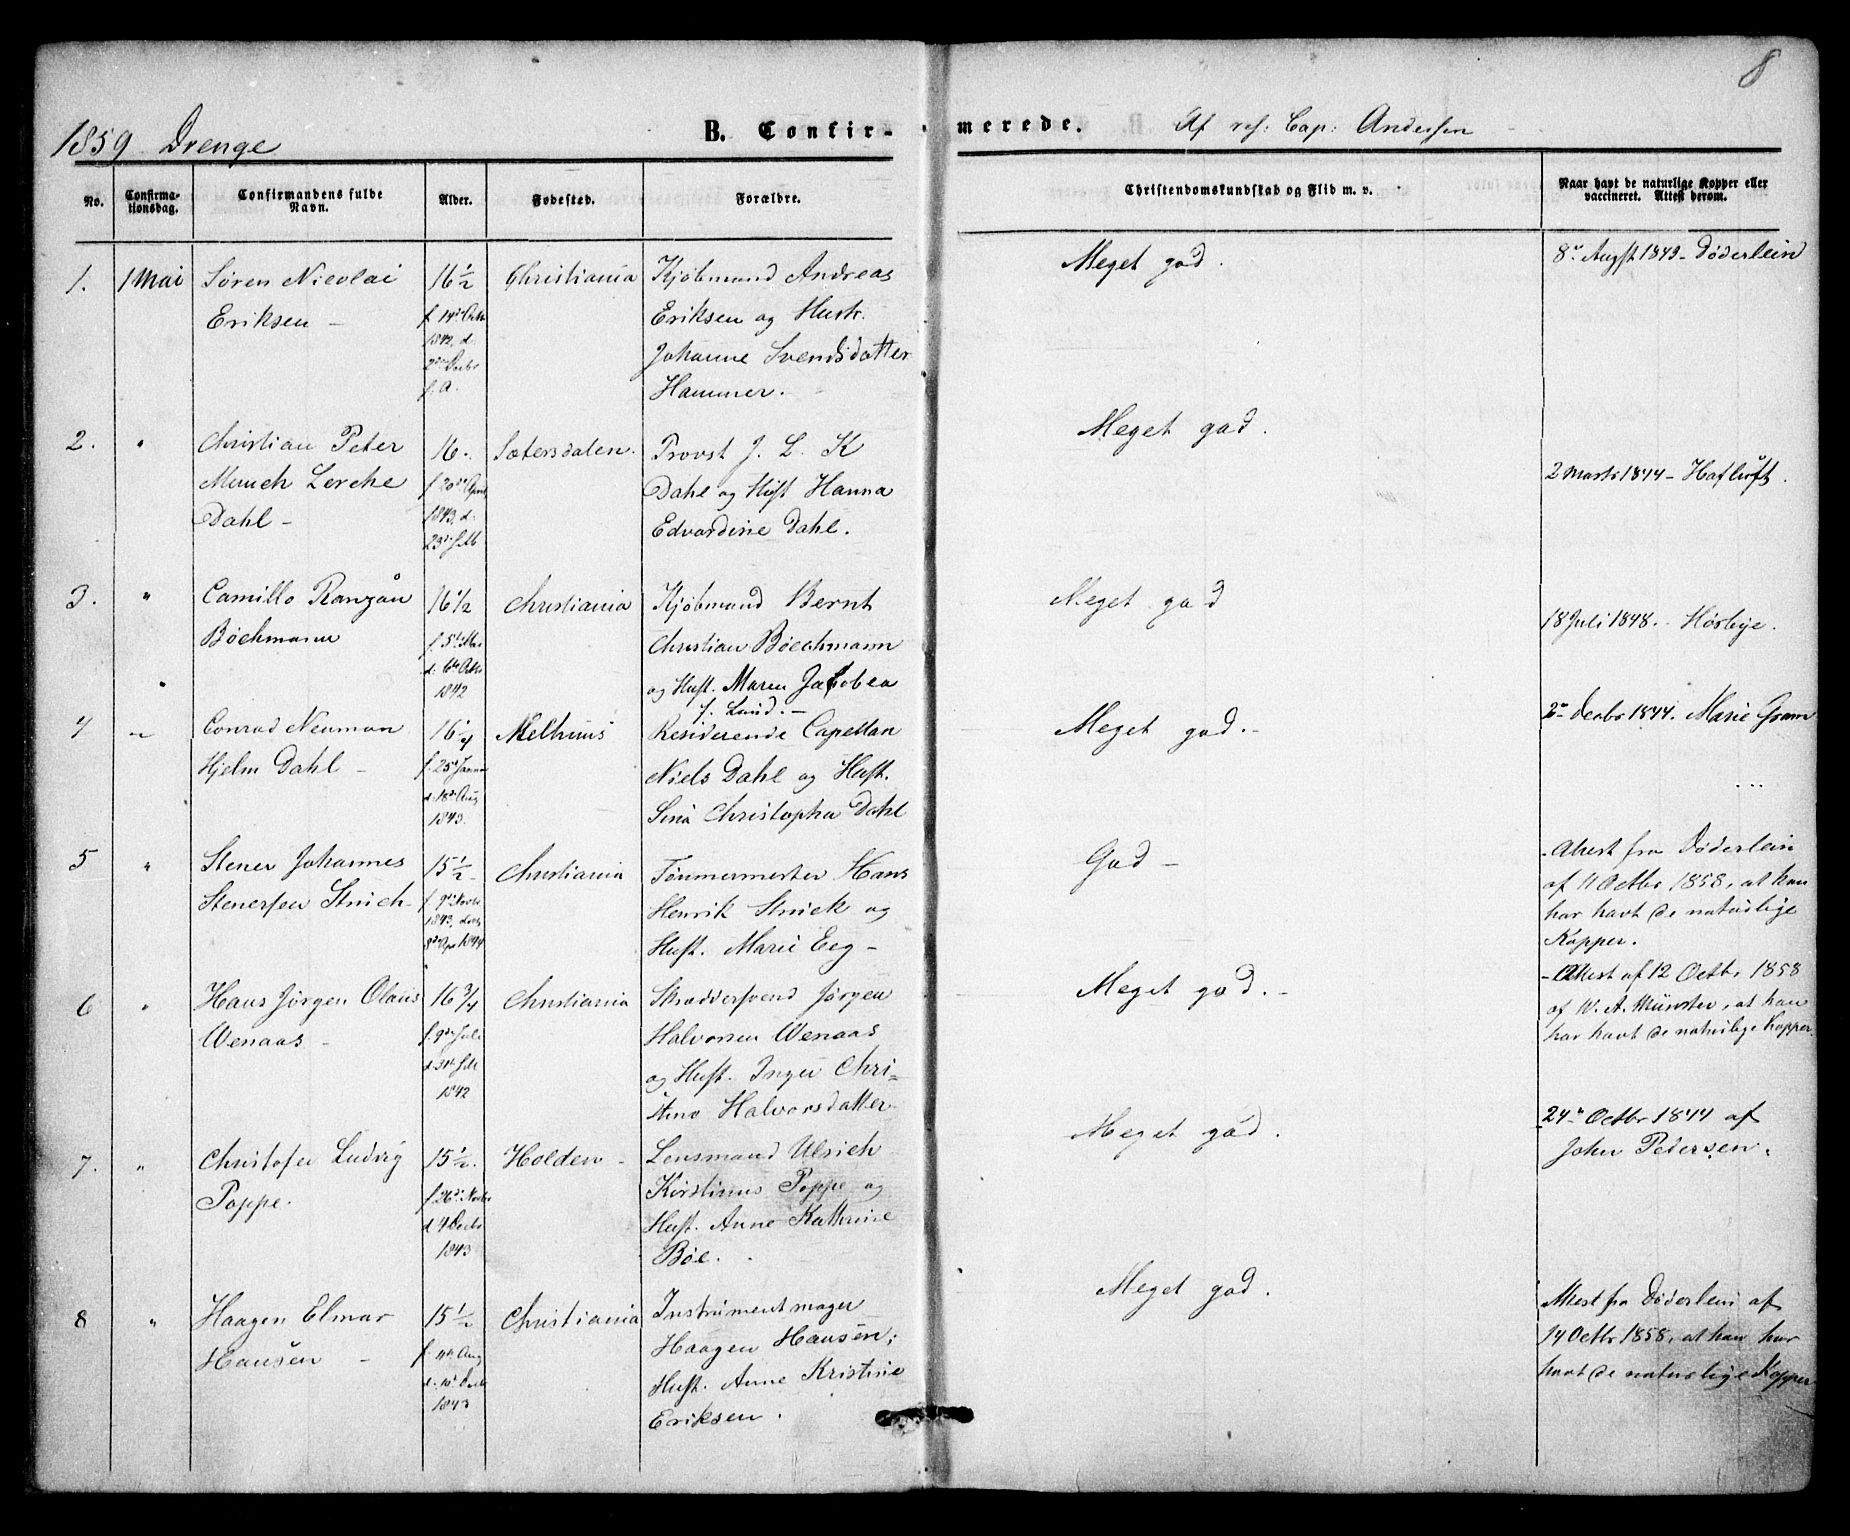 8
1859 Drenge
B. Confirmerede.
Af res: Cap: Andersen
No.
Confirmationsdag.
Confirmandens fulde Navn.
Alder.
Fødested.
Forældre.
Christendomskundskab og Flid m. v.
Naar havt de naturlige Kopper eller
vaccineret. Attest derom.
1.
1 Mai
Søren Nicolai
Eriksen -
16 1/2
f. 14de Octbr
1842, d.
f. A.
Christiania
Kjøbmand Andreas
Eriksen og Hustr.
Johanne Svendsdatter
Hammer.
Meget god.
8de Augst 1843 - Døderlein
2.
"
Christian Peter
Munch Lerche
Dahl -
16.
f. 20de April
1843, d.
23de Juli
Sætersdalen.
Provst J. L. K
Dahl og Hust Hanna
Edvardine Dahl.
Meget god.
2 Marts 1844 - Hafluft.
3.
"
Camillo
Bøchmann
16 1/2
f. 5te Mai
d. 6te Octbr
1842
Christiania
Kjøbmand Bernt
Christian Bøechmann
og Hust. Maren Jacobea
f. Lund. -
Meget god
18 Juli 1848. Hørbye.
4
"
Conrad Neuman
Hjelm Dahl -
16 1/4
f. 25de Januar
d. 18de Aug
1843.
Melhuus
Residerende Capellan
Niels Dahl og Hust.
Sina Christopha Dahl
Meget god. -
2den Decbr 1844. Marie Gram
5
"
Stener Johannes
Stenersen Strick-
15 1/2
f. 9de Novbr
1843, døbt
8de Apr 1844
Christiania
Tømmermester Hans
Henrik Strick og
Hust. Marie Eeg -
God -
- Attest fra Døderlein
af 11 Octbr 1858, at han
har havt de naturlige
Kopper.
6
"
Hans Jørgen Olaus
Wenaas -
16 3/4
f. 9de Juli
d 31te Juli
1842
Christiania
Skræddersvend Jørgen
Halvorsen Wenaas
og Hust. Inger Chri-
stine Halvorsdatter
Meget god. -
- Attest af 12 Octbr 1858
af W. A. Münster, at han
har havt de naturlige Kopper
7.
"
Christofer Ludvig
Poppe.
15 1/2.
f. 26de Novbr
d 4 Decbr
1843
Holden -
Lensmand Ulrich
Kirstinus Poppe og
Hust. Anne Kathrine
Bøe.
Meget god.
24de Octbr 1844 af
John Pedersen.
8
"
Haagen Elmar
Hansen -
15 1/2
f. 4de Aug
d. 10de Decbr
1843
Christiania
Instrumentmager
Haagen Hansen;
Hust. Anne Kristine
Eriksen.
Meget god.
Attest fra Døderlein af
14 Octbr 1858, at han har
havt de naturlige Kopper